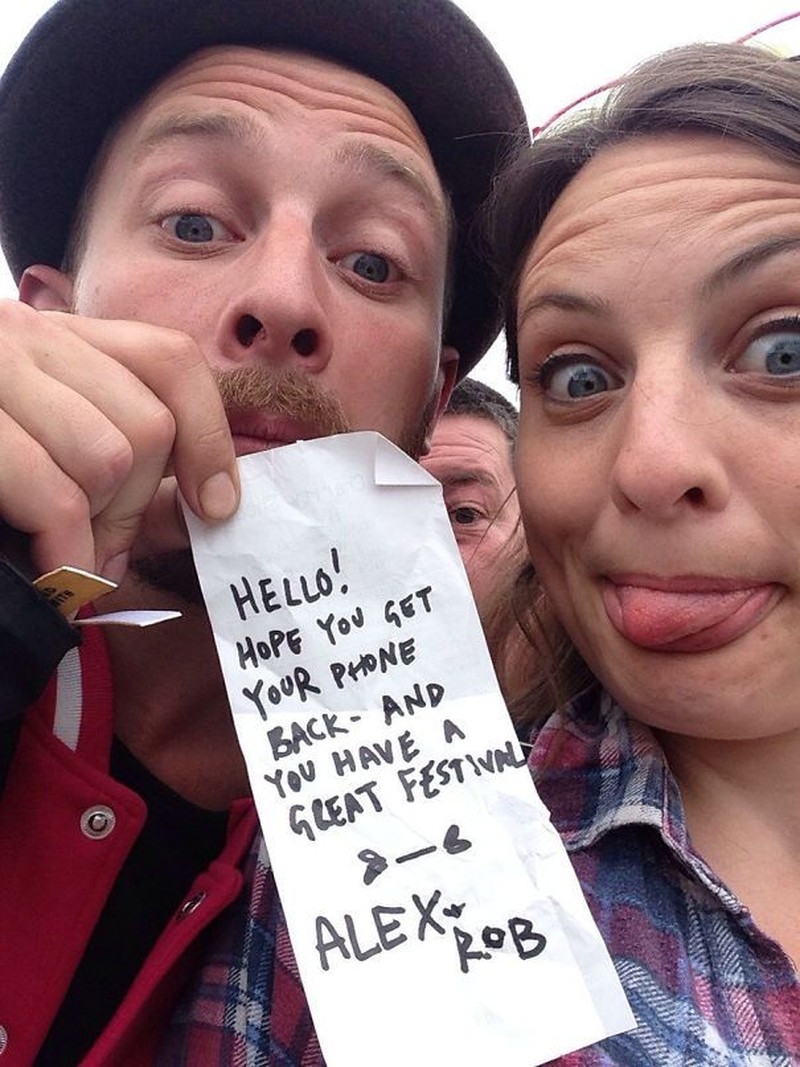 HELLO!
HOPE YOU GET
YOUR PHONE
BACK - AND
YOU HAVE A
GREAT FESTIVAL
ALEX +
ROB